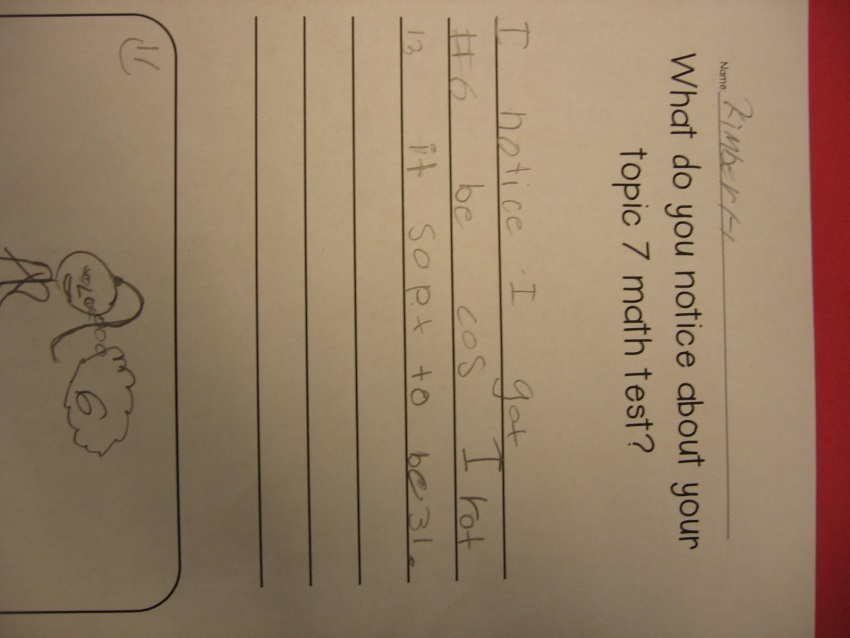 Name Kimberly
What do you notice about your
topic 7 math test?
I notice I got
#6 be cos I rot
13 it sopt to be 31.
6